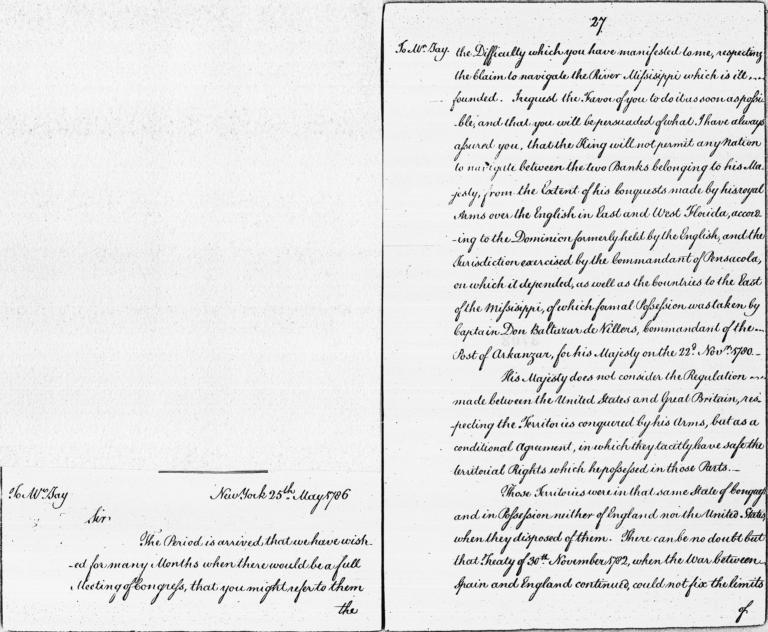 To Mr. Jay
New York 25th. May 1786
Sir,
The Period is arrived that we have wish-
-ed for many Months when there would be a full
Meeting of Congress, that you might refer to them
the
27
To Mr. Jay.
the Difficulty which you have manifested to me, respecting
the Claim to navigate the River Missisippi which is ill
founded. I request the Favor of you to do it as soon as possi-
-ble, and that you will be persuaded of what I have always
assured you, that the King will not permit any Nation
to navigate between the two Banks belonging to his Ma-
jesty, from the Extent of his Conquests made by his royal
Arms over the English in East and West Florida, accord-
-ing to the Dominion formerly held by the English, and the
Jurisdiction exercised by the Commandant of Pensacola,
on which it depended, as well as the Countries to the East
of the Missisippi, of which formal Possession was taken by
Captain Don Baltazar de Villers, Commandant of the
Post of Arkanzar, for his Majesty on the 22d. Novr. 1780.
His Majesty does not consider the Regulation
made between the United States and Great Britain, res-
-pecting the Territories conquered by his Arms, but as a
conditional Agreement, in which they tacitly leave safe the
territorial Rights which he possessed in those Parts.
Those Territories were in that same State of Conquest
and in Possession neither of England nor the United States,
when they disposed of them. There can be no doubt but
that Treaty of 30th. November 1782, when the War between
Spain and England continued, could not fix the limits
of